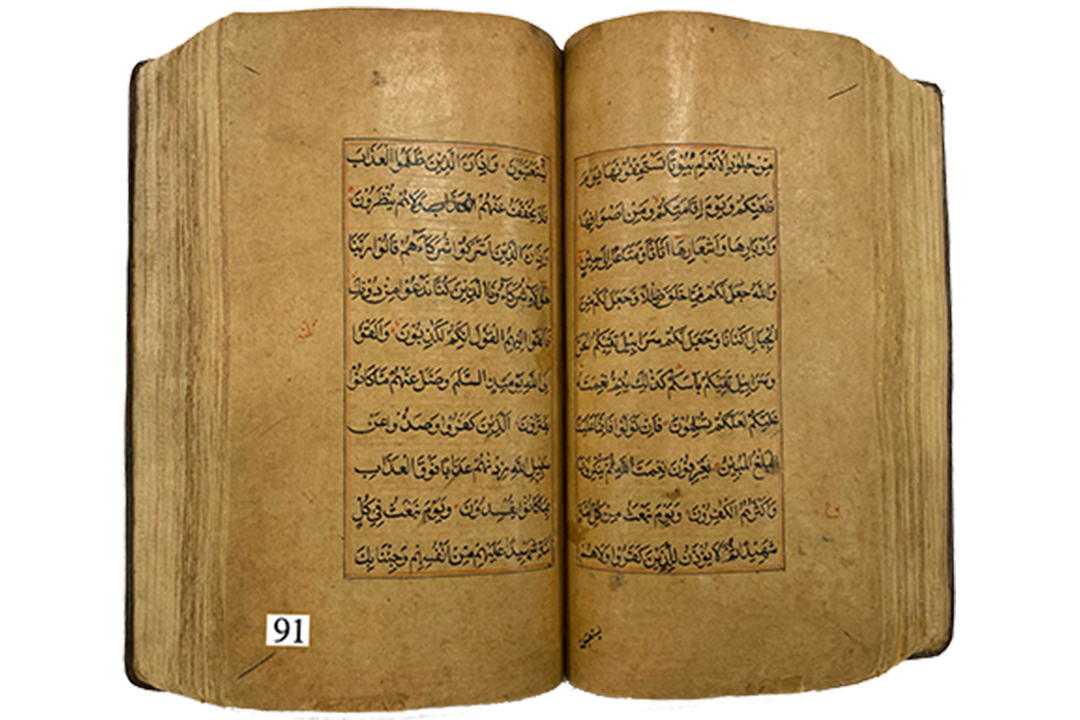 مِّن جُلُودِ الْأَنْعَامِ بُيُوتًا تَسْتَخِفُّونَهَا يَوْمَ
ظَعْنِكُمْ وَيَوْمَ إِقَامَتِكُمْ وَمِنْ أَصْوَافِهَا
وَأَوْبَارِهَا وَأَشْعَارِهَا أَثَاثًا وَمَتَاعًا إِلَىٰ حِينٍ
وَاللَّهُ جَعَلَ لَكُم مِّمَّا خَلَقَ ظِلَالًا وَجَعَلَ لَكُم مِّنَ
الْجِبَالِ أَكْنَانًا وَجَعَلَ لَكُمْ سَرَابِيلَ تَقِيكُمُ الْحَرَّ
وَسَرَابِيلَ تَقِيكُم بَأْسَكُمْ كَذَٰلِكَ يُتِمُّ نِعْمَتَهُ
عَلَيْكُمْ لَعَلَّكُمْ تُسْلِمُونَ فَإِن تَوَلَّوْا فَإِنَّمَا عَلَيْكَ
الْبَلَاغُ الْمُبِينُ يَعْرِفُونَ نِعْمَتَ اللَّهِ ثُمَّ يُنكِرُونَهَا
وَأَكْثَرُهُمُ الْكَافِرُونَ وَيَوْمَ نَبْعَثُ مِن كُلِّ أُمَّةٍ
شَهِيدًا ثُمَّ لَا يُؤْذَنُ لِلَّذِينَ كَفَرُوا وَلَا هُمْ
يستعتبون
يُسْتَعْتَبُونَ وَإِذَا رَأَى الَّذِينَ ظَلَمُوا الْعَذَابَ
فَلَا يُخَفَّفُ عَنْهُمْ وَلَا هُمْ يُنظَرُونَ
وَإِذَا رَأَى الَّذِينَ أَشْرَكُوا شُرَكَاءَهُمْ قَالُوا رَبَّنَا
هَٰؤُلَاءِ شُرَكَاؤُنَا الَّذِينَ كُنَّا نَدْعُو مِن دُونِكَ
فَأَلْقَوْا إِلَيْهِمُ الْقَوْلَ إِنَّكُمْ لَكَاذِبُونَ وَأَلْقَوْا
إِلَى اللَّهِ يَوْمَئِذٍ السَّلَمَ وَضَلَّ عَنْهُم مَّا كَانُوا
يَفْتَرُونَ الَّذِينَ كَفَرُوا وَصَدُّوا عَن
سَبِيلِ اللَّهِ زِدْنَاهُمْ عَذَابًا فَوْقَ الْعَذَابِ
بِمَا كَانُوا يُفْسِدُونَ وَيَوْمَ نَبْعَثُ فِي كُلِّ
أُمَّةٍ شَهِيدًا عَلَيْهِم مِّنْ أَنفُسِهِمْ وَجِئْنَا بِكَ
91